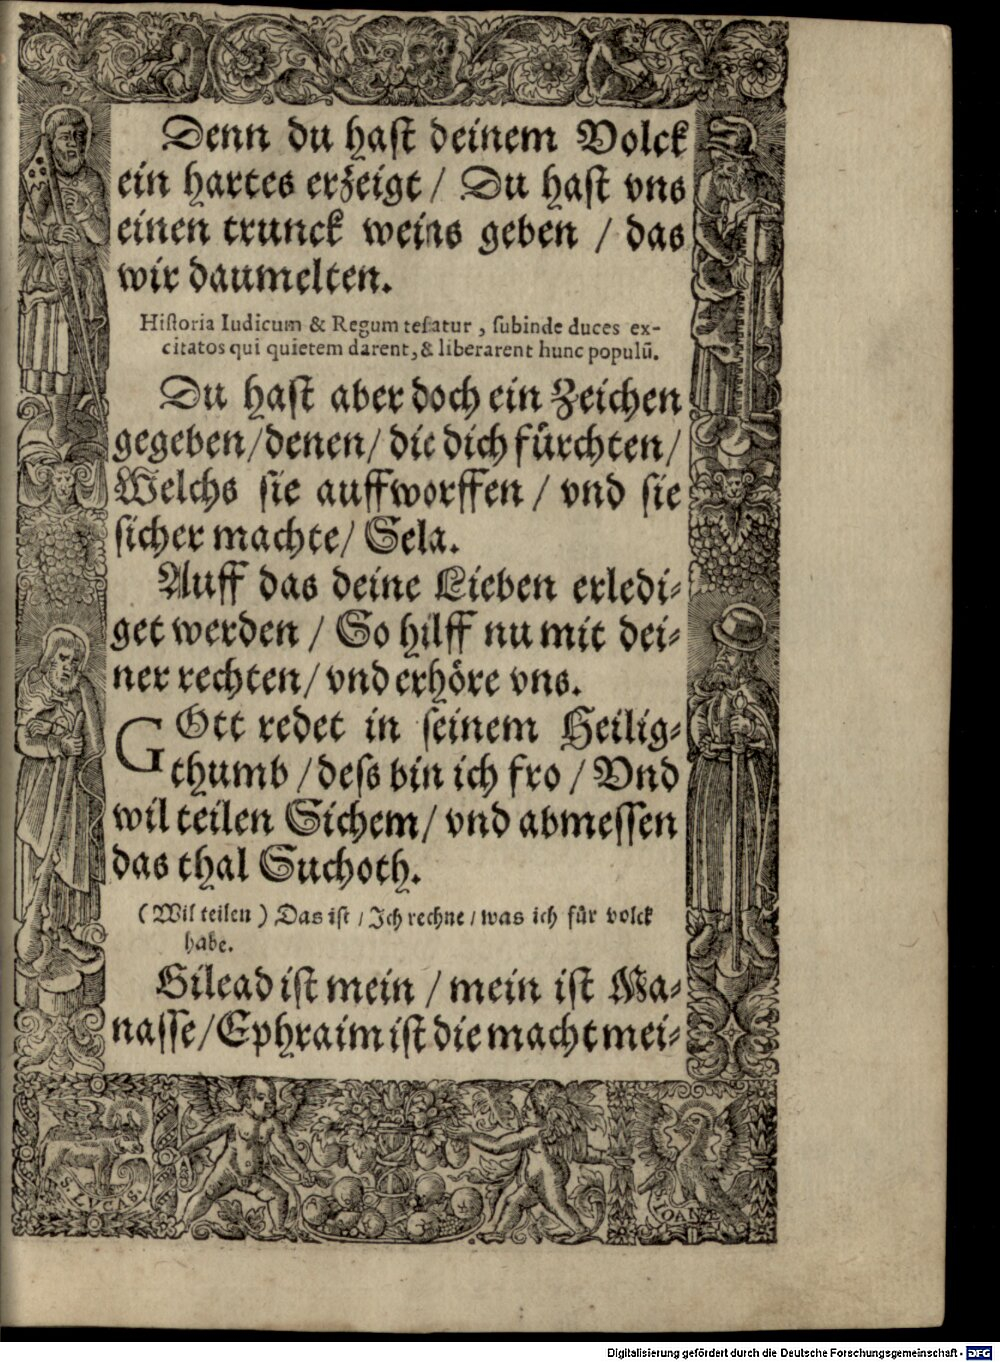 Denn du haſt deinem Volck
ein hartes erzeigt / Du haſt vns
einen trunck weins geben / das
wir daumelten.
Hiſtoria Iudicum & Regum teſtatur , ſubinde duces ex-
citatos qui quietem darent, & liberarent hunc populū.
Du haſt aber doch ein Zeichen
gegeben / denen / die dich fürchten /
Welchs ſie auffworffen / vnd ſie
ſicher machte / Sela.
Auff das deine Lieben erledi-
get werden / So hilff nu mit dei-
ner rechten / vnd erhöre vns.
GOtt redet in ſeinem Heilig-
thumb / deſs bin ich fro / Vnd
wil teilen Sichem / vnd abmeſſen
das thal Suchoth.
(Wil teilen) Das iſt / Ich rechne / was ich für volck
habe.
Gilead iſt mein / mein iſt Ma-
naſſe / Ephraim iſt die macht mei-
S. LVCAS.
IOANE
Digitalisierung gefördert durch die Deutsche Forschungsgemeinschaft - DFG